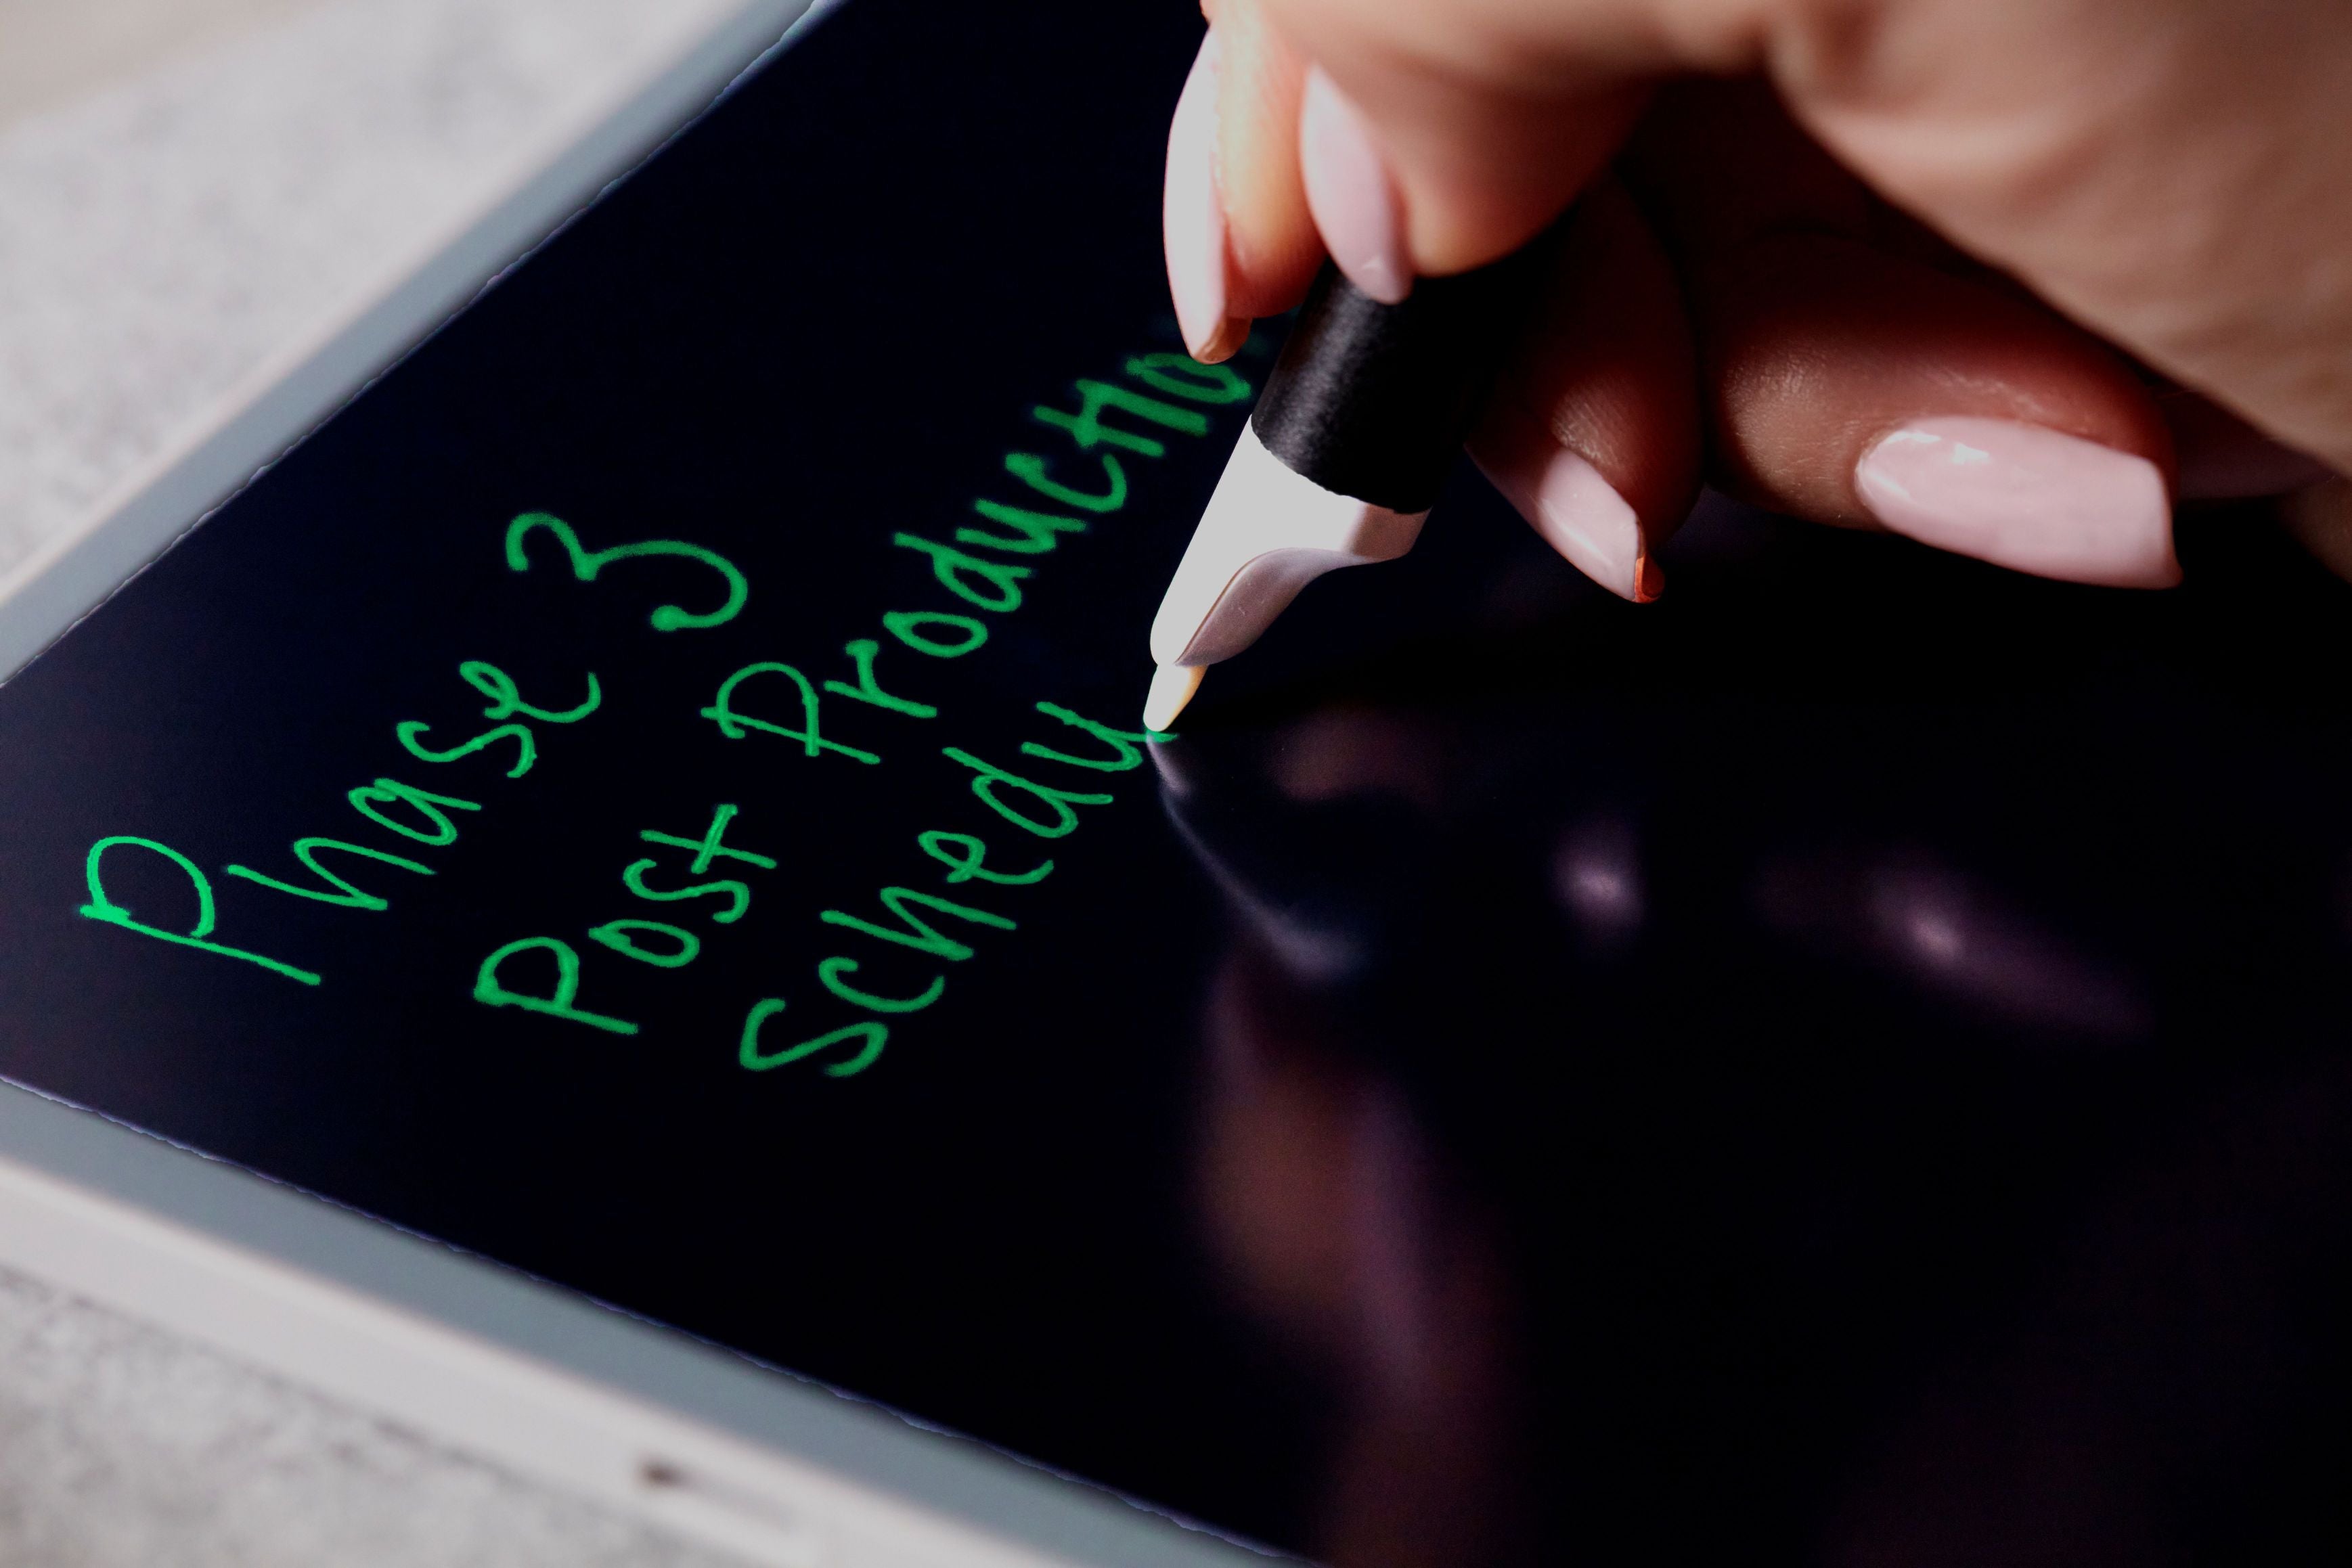 Phase 3
Post Productio
schedu